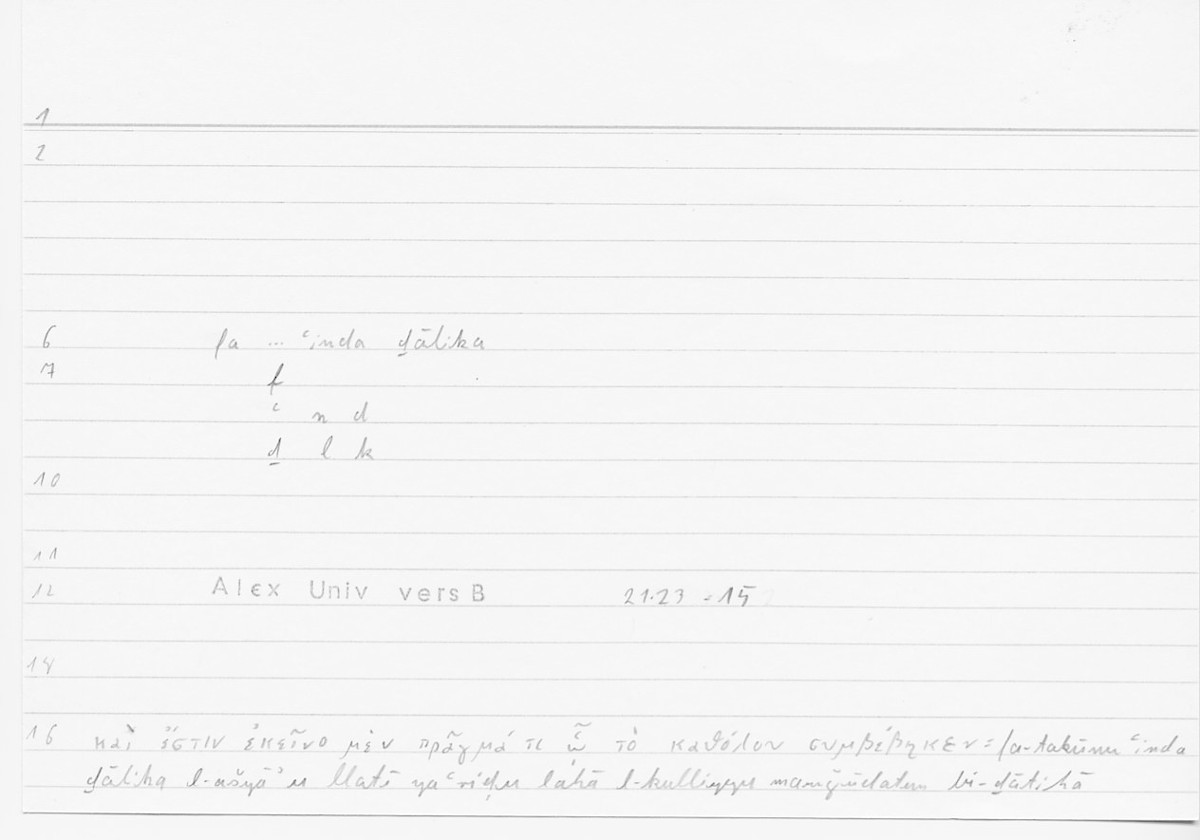 1
2
6 fa ... ʿinda ḏālika
7 f
ʿ n d
ḏ l k
10
11
12 Alex Univ vers B 21.23 = 15
14
16 καὶ ἔστιν ἐκεῖνο μὲν πρᾶγμά τι ᾧ τὸ καθόλου συμβέβηκεν = fa-takūnu ʿinda
ḏālika l-ašyāʾu llatī yaʿriḍu lahā l-kulliyyu mawǧūdatun bi-ḏātihā